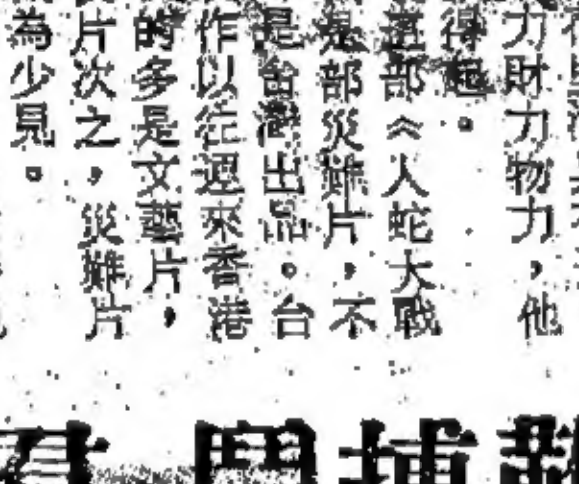 力財力物力，他
得起。
這部《人蛇大戰
是部災難片，不
是台灣出品。台
作以往運來香港
的多是文藝片，
片次之，災難片
為少見。
鬥捕